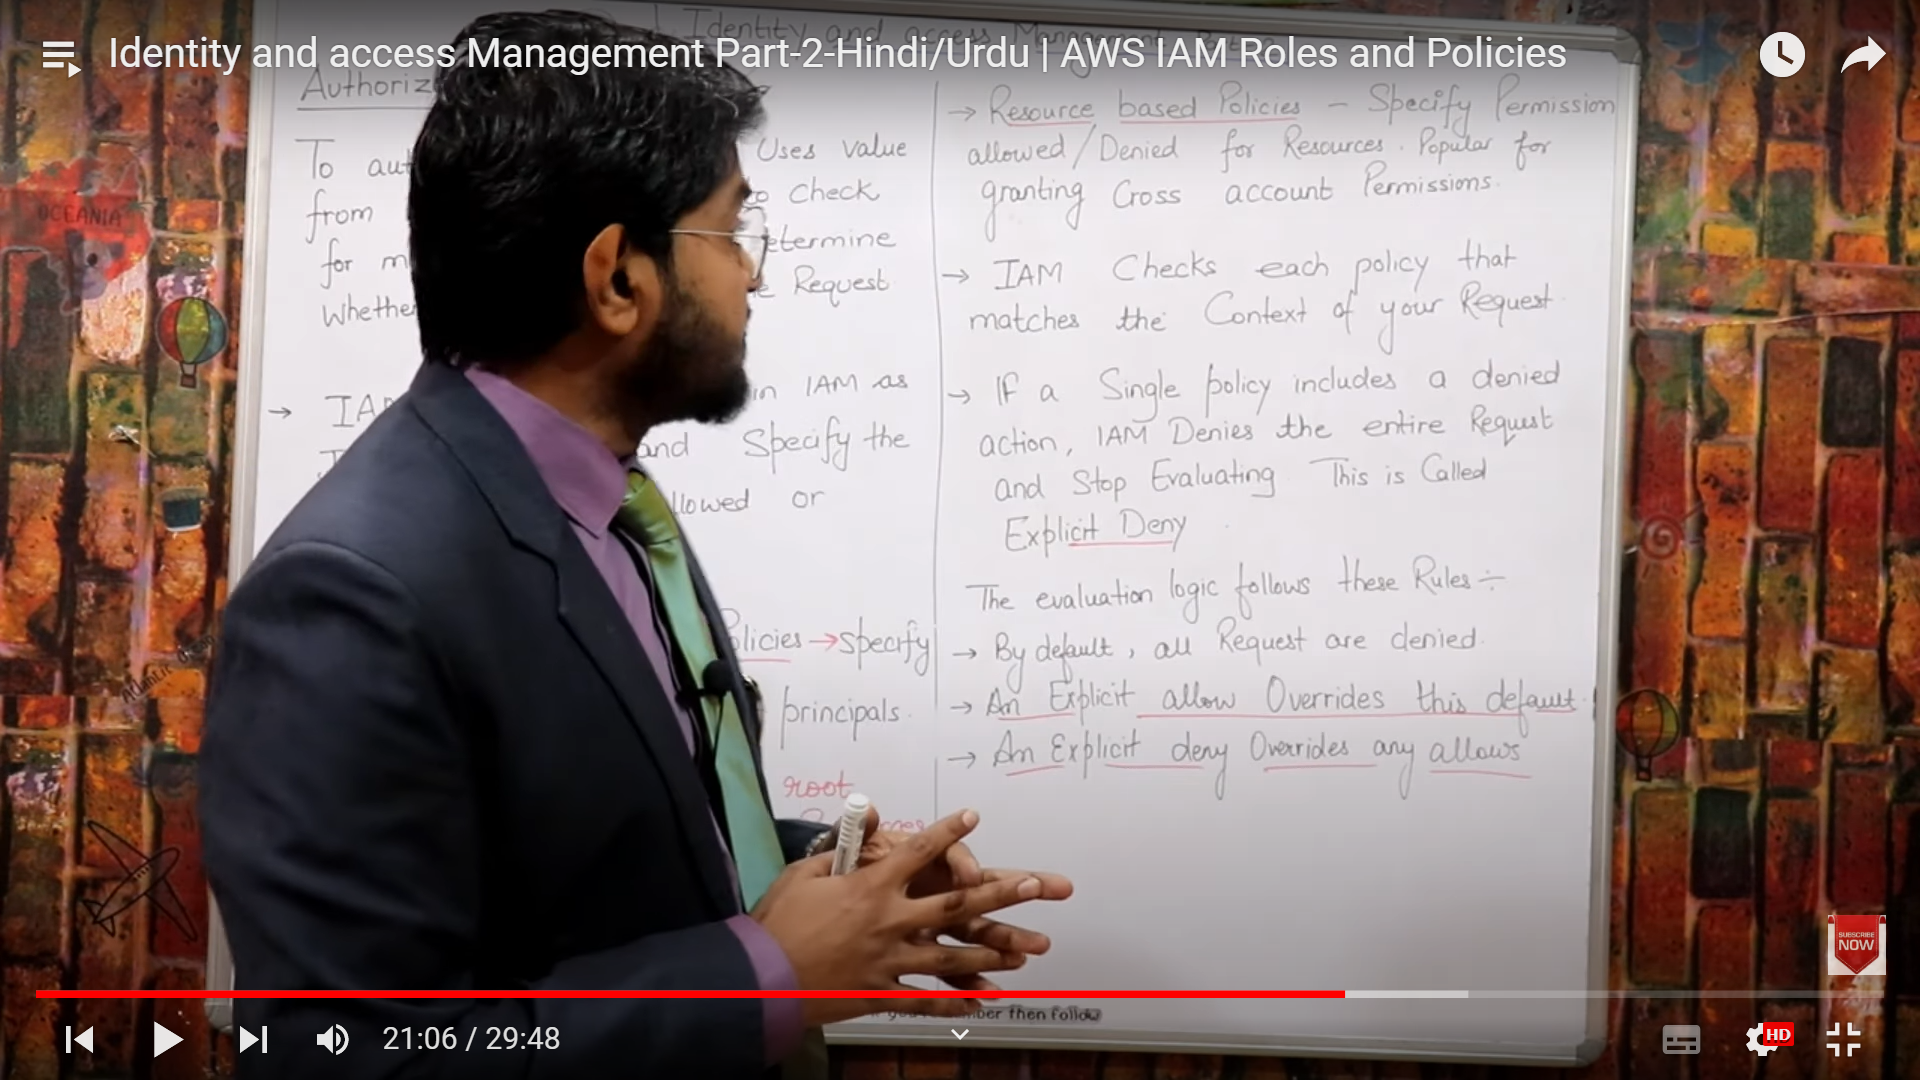 Identity and access Management Part-2-Hindi/Urdu | AWS IAM Roles and Policies
Identity and access Management
To
Uses value
from
to check
for
etermine
Request
Whether
→
in IAM as
and Specify the
llowed or
olicies → specify
principals.
root
→ Resource based Policies – Specify Permission
allowed / Denied for Resources. Popular for
granting Cross account Permissions.
→ IAM Checks each policy that
matches the Context of your Request.
→ IF a Single policy includes a denied
action, IAM Denies the entire Request
and Stop Evaluating. This is Called
Explicit Deny.
The evaluation logic follows these Rules ÷
→ By default, all Request are denied.
→ An Explicit allow Overrides this default.
→ An Explicit deny Overrides any allows
OCEANIA
Atlantic
SUBSCRIBE
NOW
then follow
21:06 / 29:48
HD